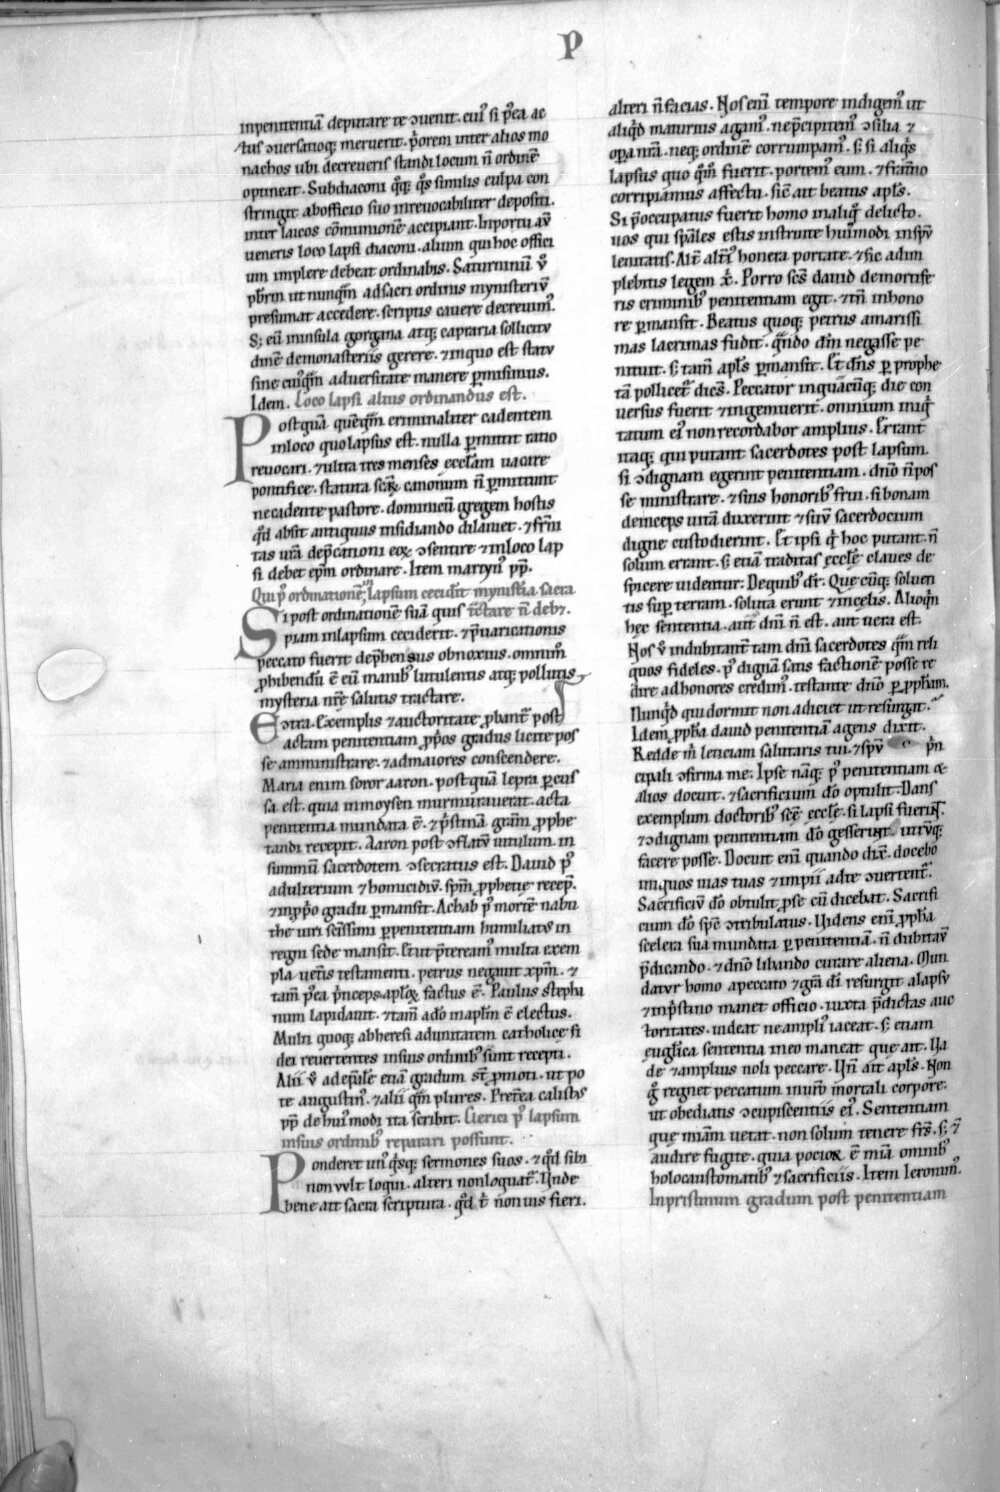 P
inpenitentiā deputare te ɔuenit. cui᷒ si p̄ea ac
tus ɔuersatioq; meruerit. p̄orem inter alios mo
nachos ubi decreueris standi locum n̄ ordinē
optineat. Subdiaconi q̄q; q̄s similis culpa con
stringit abofficio suo inreuocabiliter depositi.
inter laicos cōmunionē accipiant. Inportu aū
ueneris loco lapsi diaconi. alium qui hoc offici
um implere debeat ordinabis. Saturninū ū
pbr̄m ut nunq̄m adsacri ordinis mynisteriū
presumat accedere. scriptis cauere decreuim᷒.
S; eū ininsula gorgina atq; capraria sollicitu
dinē demonasteriis gerere. ⁊inquo est statu
sine cui᷒q̄m aduersitate manere p̱misimus.
Idem. Loco lapsi alius ordinandus est.
Postquā quēq̄m criminaliter cadentem
inloco quolapsus est. nulla p̱mittit ratio
reuocari. ⁊ultra tres menses eccl̄am uacare
pontifice. statuta sc̄oꝝ canonum n̄ p̱mittunt
ne cadente pastore. dominicū gregem hostis
q̄d absit antiquus insidiando dilaniet. ⁊fr̄ni
tas ur̄a dep̄cationi eoꝝ ɔsentire ⁊inloco lap
si debet ep̄m ordinare. Item martyn᷒ pp̄.
Qui p᷒ ordinationē inlapsum cecidit mynistīa sacra
Si post ordinationē suā quis tc̄tare n̄ deb⁊.
piam inlapsum ceciderit. ⁊p̄uaricationis
peccato fuerit dep̄hensus obnoxius. omnim᷒
ꝓhibendū ē eū manib᷒ lutulentis atq; pollutis
mysteria nr̄e salutis tractare.
Eɔtra. Exemplis ⁊auctoritate ꝓbant᷒ post
actam penitentiam ꝓp̄os gradus licite pos
se amministrare. ⁊admaiores conscendere.
Maria enim soror aaron. postquā lepra p̱cus
sa est. quia inmoysen murmurauerat. acta
penitentia mundata ē. ⁊p̄stinā gr̄am ꝓphe
tandi recepit. Aaron post ɔflatū uitulum. in
summū sacerdotem ɔsecratus est. Dauid p᷒
adulterium ⁊homicidiū. sp̄m ꝓphetię recep̄.
⁊inꝓp̄o gradu p̱mansit. Achab p᷒ mortē nabu
the uiri sc̄issimi p̱penitentiam humiliatus in
regni sede mansit. Et ut p̄teream᷒ multa exem
pla uet̄is testamenti. petrus negauit xp̄m. ⁊
tam̄ p̄ea p̄nceps apl̄oꝝ factus ē. Paulus stepha
num lapidauit. ⁊tam̄ adō mapl̄m ē electus.
Multi quoq; abheresi adunitatem catholice fi
dei reuertentes insuis ordinib᷒ sunt recepti.
Alii ū adep̄ale etiā gradum st̄ ꝓmoti. ut po
te augustin᷒. ⁊alii q̄m plures. Preterea calistus
pp̄ de hui᷒modi ita scribit. Clerici p᷒ lapsum
insuis ordinib᷒ reparari possunt.
Ponderet un᷒q̄sq; sermones suos. ⁊q̄d sibi
non uult loqui. alteri nonloquat᷒. Unde
bene ait sacra scriptura. q̄d t̄ non uis fieri.
alteri n̄ facias. Nos eni᷒ tempore indigem᷒ ut
aliq̄d maturius agam᷒. nep̄cipitem᷒ ɔsilia ⁊
opa nr̄a. neq; ordinē corrumpam᷒. s; si aliq̄s
lapsus quo q̄m᷒ fuerit. portem᷒ eum. ⁊fr̄aīno
corripiamus affectu. sic̄ ait beatus apl̄s.
Si p̄occupatus fuerit homo inaliq᷒ delicto.
uos qui sp̄ales estis instruite hui᷒modi inspū
lenitatis. Alt̄ alt̄i᷒ honera portate. ⁊sic adim
plebitis legem x̄. Porro sc̄s dauid demortife
ris criminib᷒ penitentiam egit. ⁊tn̄ inhono
re p̱mansit. Beatus quoq; petrus amarissi
mas lacrimas fudit. q̄ndo dn̄m negasse pe
nituit. s; tam̄ apl̄s p̱mansit. Et dn̄s p̱ prophe
tā pollicet᷒ dicēs. Peccator inquacūq; die con
uersus fuerit ⁊ingemuerit. omnium iniq̄
tatum ei᷒ non recordabor amplius. Errant
itaq; qui putant sacerdotes post lapsum.
si ɔdignam egerint penitentiam. dn̄o n̄ pos
se ministrare. ⁊suis honorib᷒ frui. si bonam
deinceps uitā duxerint ⁊suū sacerdocium
digne custodierint. Et ipsi q̄ hoc putant. n̄
solum errant. s; etiā traditas eccl̄e claues de
spicere uidentur. Dequib᷒ dr̄. Que cūq; soluen
tis sup̱ terram. soluta erunt ⁊incelis. Alioq̄n
hęc sententia. aut dn̄i n̄ est. aut uera est.
Nos ū indubitant᷒ tam dn̄i sacerdotes q̄m reli
quos fideles. p᷒ dignā satisfactionē posse re
dire adhonores credim᷒. testante dn̄o p̱ ꝓph̄am.
Nunq̄d qui dormit non adiciet ut resurgat.
Idem ꝓph̄a dauid penitentiā agens dixit.
Redde m̄ leticiam salutaris tui. ⁊spū p̄n
cipali ɔfirma me. Ipse nāq; p᷒ penitentiam ⁊
alios docuit. ⁊sacrificium dō optulit. Dans
exemplum doctorib᷒ sc̄ę eccl̄ę. si lapsi fuerīt.
⁊ɔdignam penitentiam dō gesserint. utrūq;
facere posse. Docuit eni᷒ quando dix̄. docebo
iniquos uias tuas ⁊impii adte ɔuertent᷒.
Sacrificiū dō obtulit ꝓ se cū dicebat. Sacrifi
cium dō sp̄c ɔtribulatus. Uidens eni᷒ ꝓph̄a
scelera sua mundata p̱ penitentiā. n̄ dubitau᷒
p̄dicando. ⁊dn̄o libando curare aliena. Mun
datur homo apeccato ⁊gr̄a dī resurgit alapsu
⁊inp̄stino manet officio. iuxta p̄dictas auc
toritates. uideat ne ampli᷒ iaceat. s; etiam
euḡlica sententia ineo maneat que ait. Ua
de ⁊amplius noli peccare. Un̄ ait apl̄s. Non
g᷒ regnet peccatum inur̄o mortali corpore.
ut obediatis ɔcupiscentiis ei᷒. Sententiam
quę miam̄ uetat. non solum tenere fr̄s. s; ⁊
audire fugite. quia pocior ē mīa omnib᷒
holocaustomatib᷒ ⁊sacrificiis. Item Ieronim᷒.
Inpristinum gradum post penitentiam